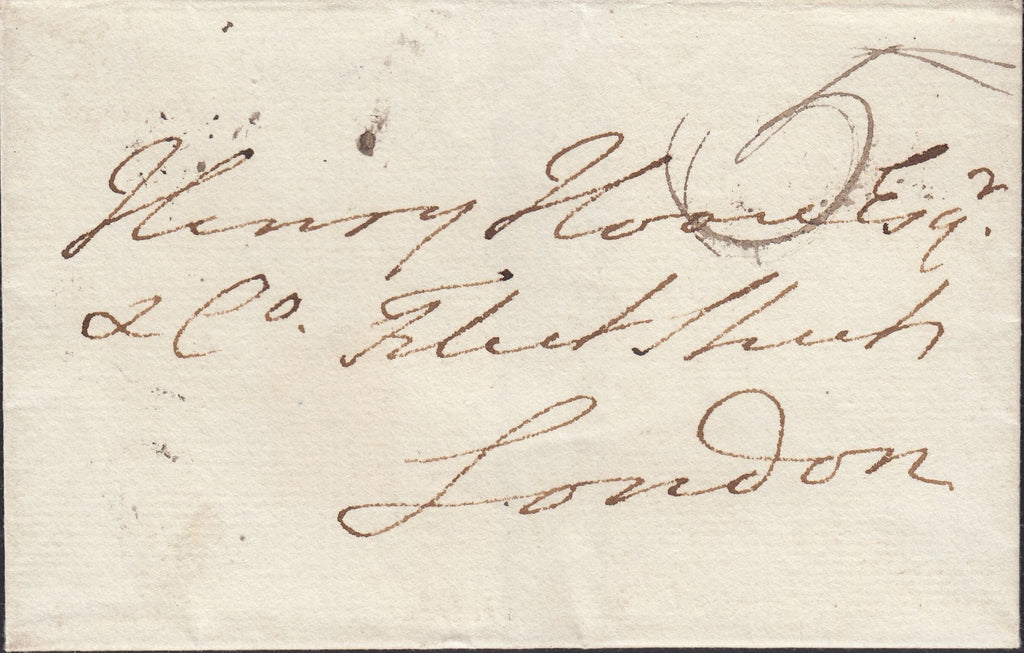 Henry Hoare Esqr.
& Co. Fleet Street
London